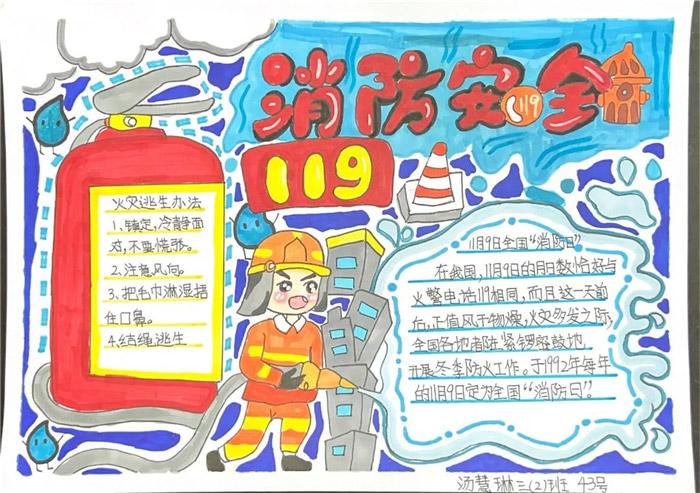 消防安全
119
119
火灾逃生办法
1、镇定,冷静面
对,不要慌张。
2、注意风向。
3、把毛巾淋湿捂
住口鼻。
4、结绳逃生
11月9日全国“消防日”
在我国,11月9日的月日数恰好与
火警电话119相同,而且这一天前
后,正值风干物燥,火灾多发之际,
全国各地都在紧锣密鼓地
开展冬季防火工作。于1992年每年
的11月9日定为全国“消防日”。
汤慧琳三(2)班 43号